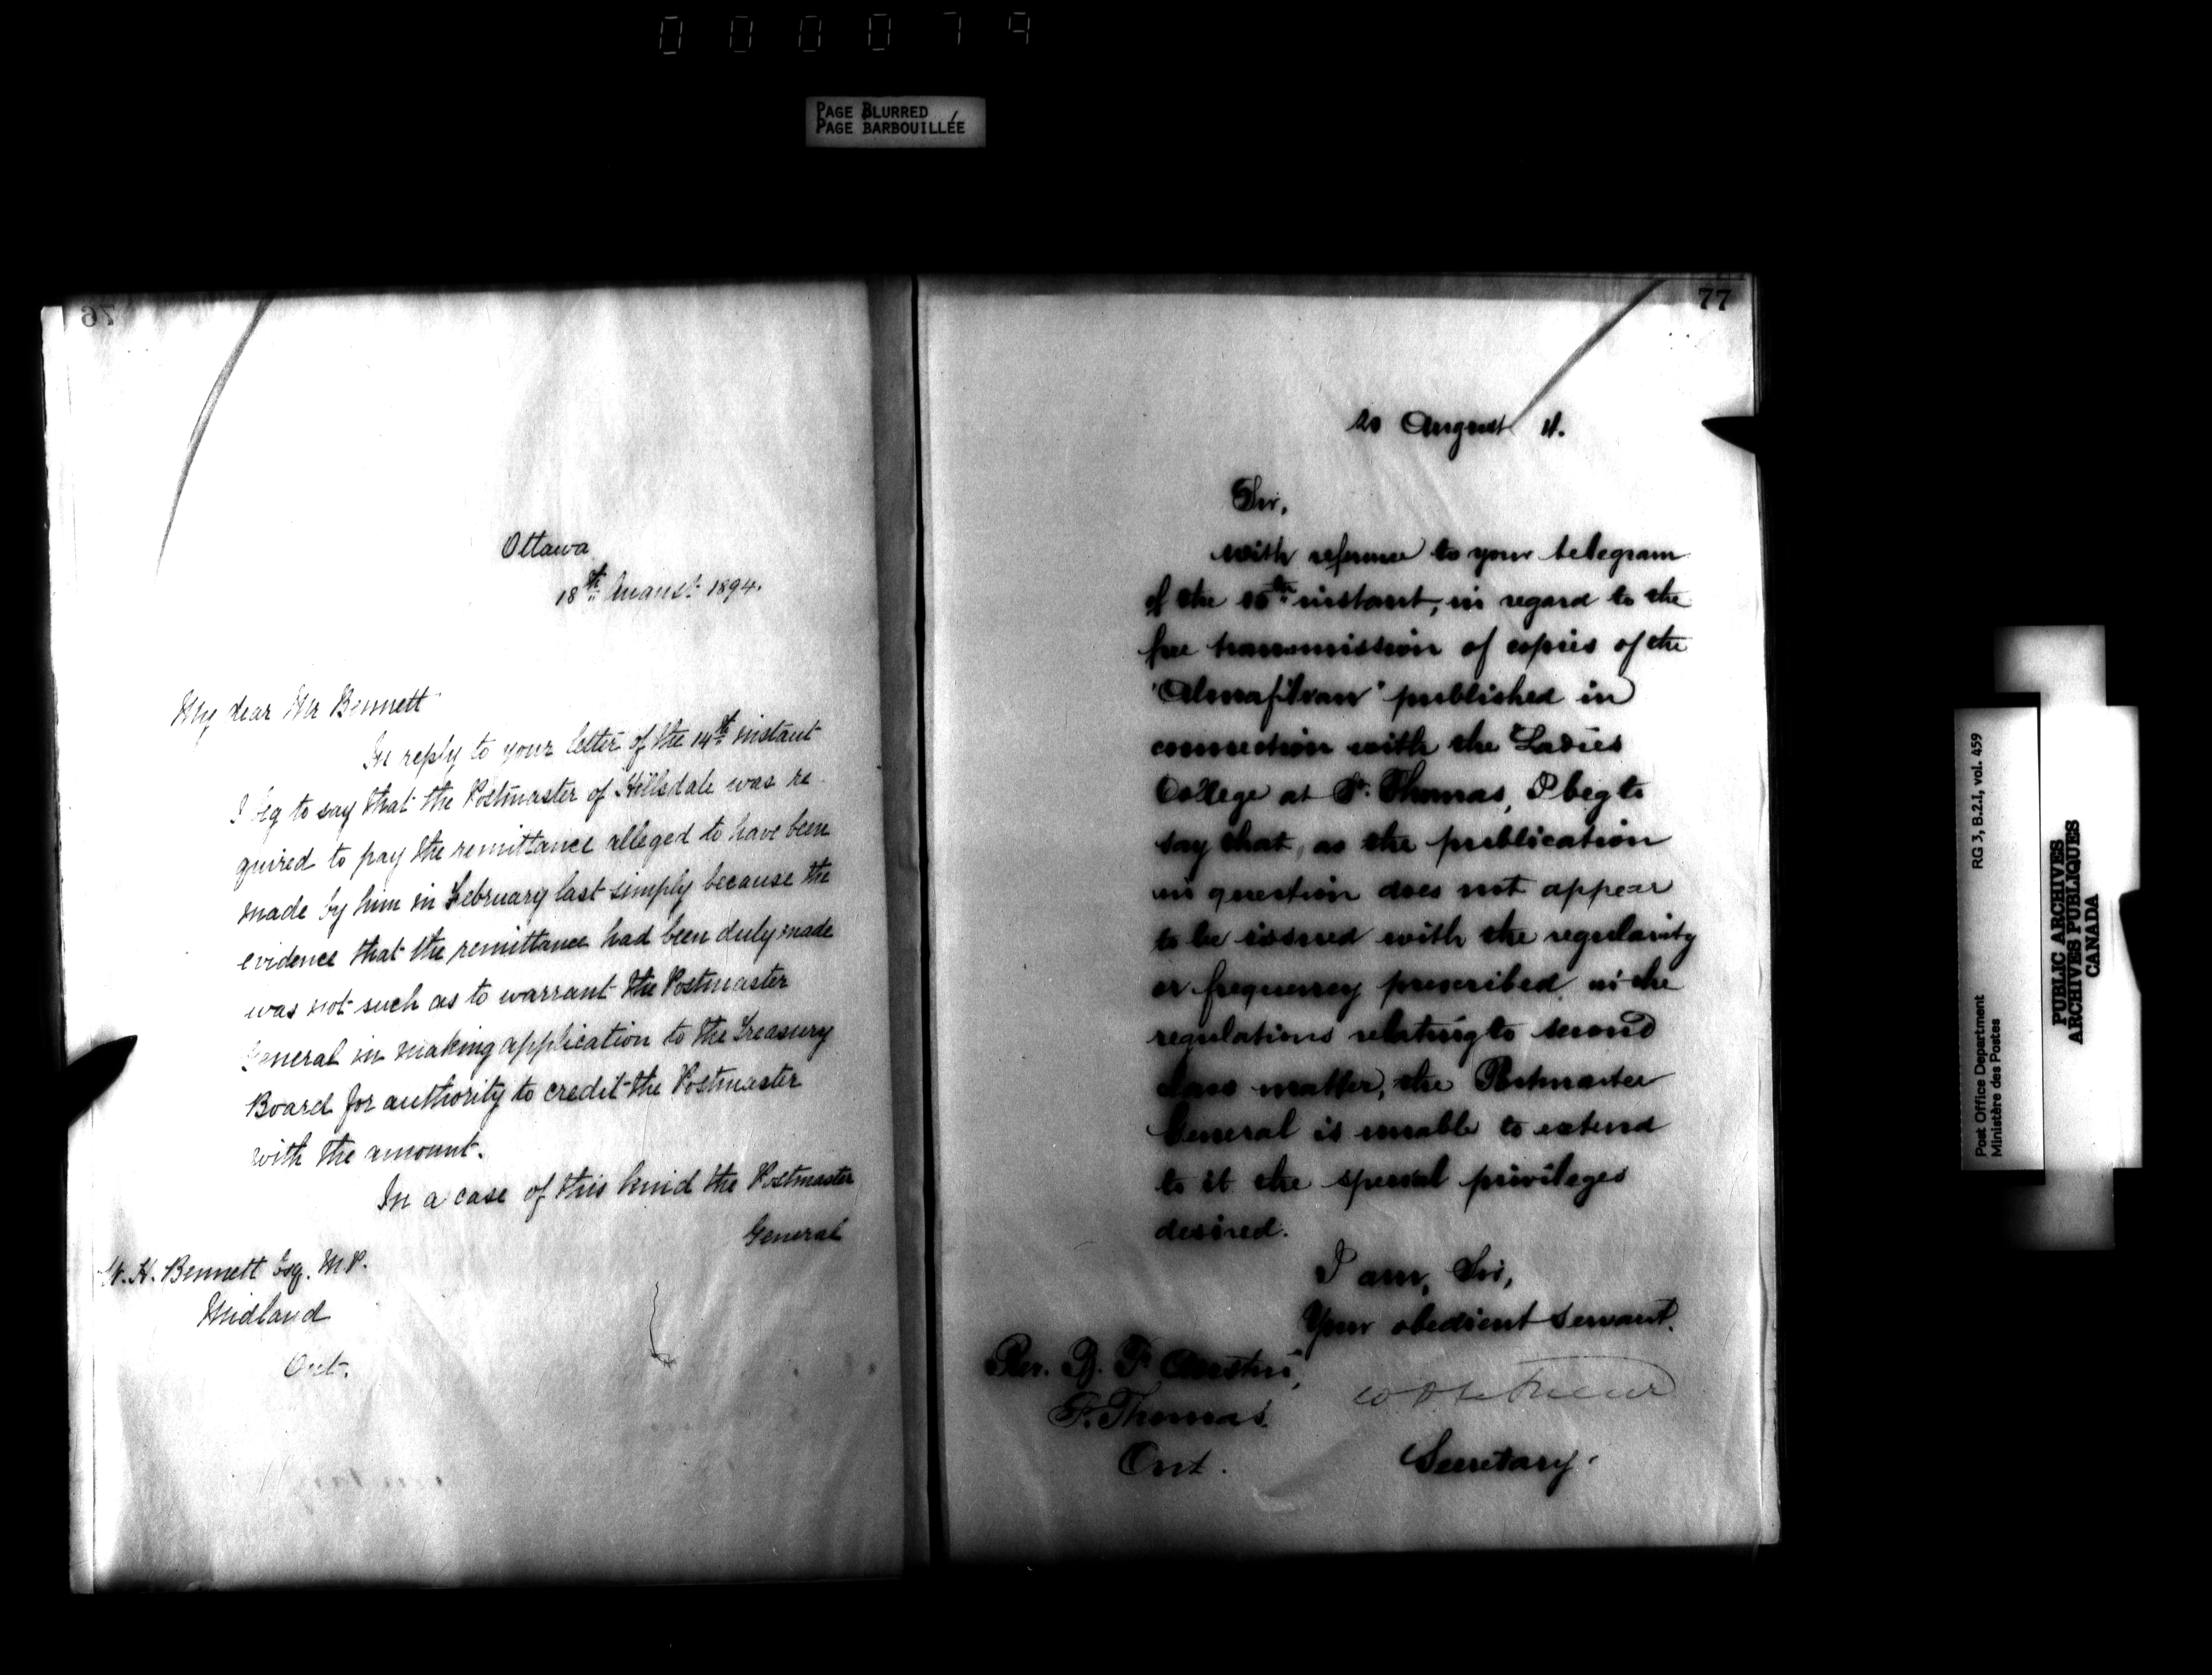 000079
PAGE BLURRED
PAGE BARBOUILLÉE
76
Ottawa
18th August 1894.
My dear Mr Bennett
In reply to your letter of the 14th instant
I beg to say that the Postmaster of Hillsdale was re-
quired to pay the remittance alleged to have been
made by him in February last simply because the
evidence that the remittance had been duly made
was not such as to warrant the Postmaster
General in making application to the Treasury
Board for authority to credit the Postmaster
with the amount.
In a case of this kind the Postmaster
General
W. H. Bennett Esq. M.P.
Midland
Ont.
77
20 August 4.
Sir,
with reference to your telegram
of the instant, in regard to the
free transmission of copies of the
"Almafilian" published in
connection with the Ladies
College at St. Thomas, I beg to
say that, as the publication
in question does not appear
to be issued with the regularity
or frequency prescribed in the
regulations relating to second
class matter, the Postmaster
General is unable to extend
to it the special privileges
desired.
I am, Sir,
Your obedient servant.
Rev. B. F. Austin,
St. Thomas.
Ont.
Secretary.
Post Office Department
Ministère des Postes
RG 3, B.2.1, vol. 459
PUBLIC ARCHIVES
ARCHIVES PUBLIQUES
CANADA